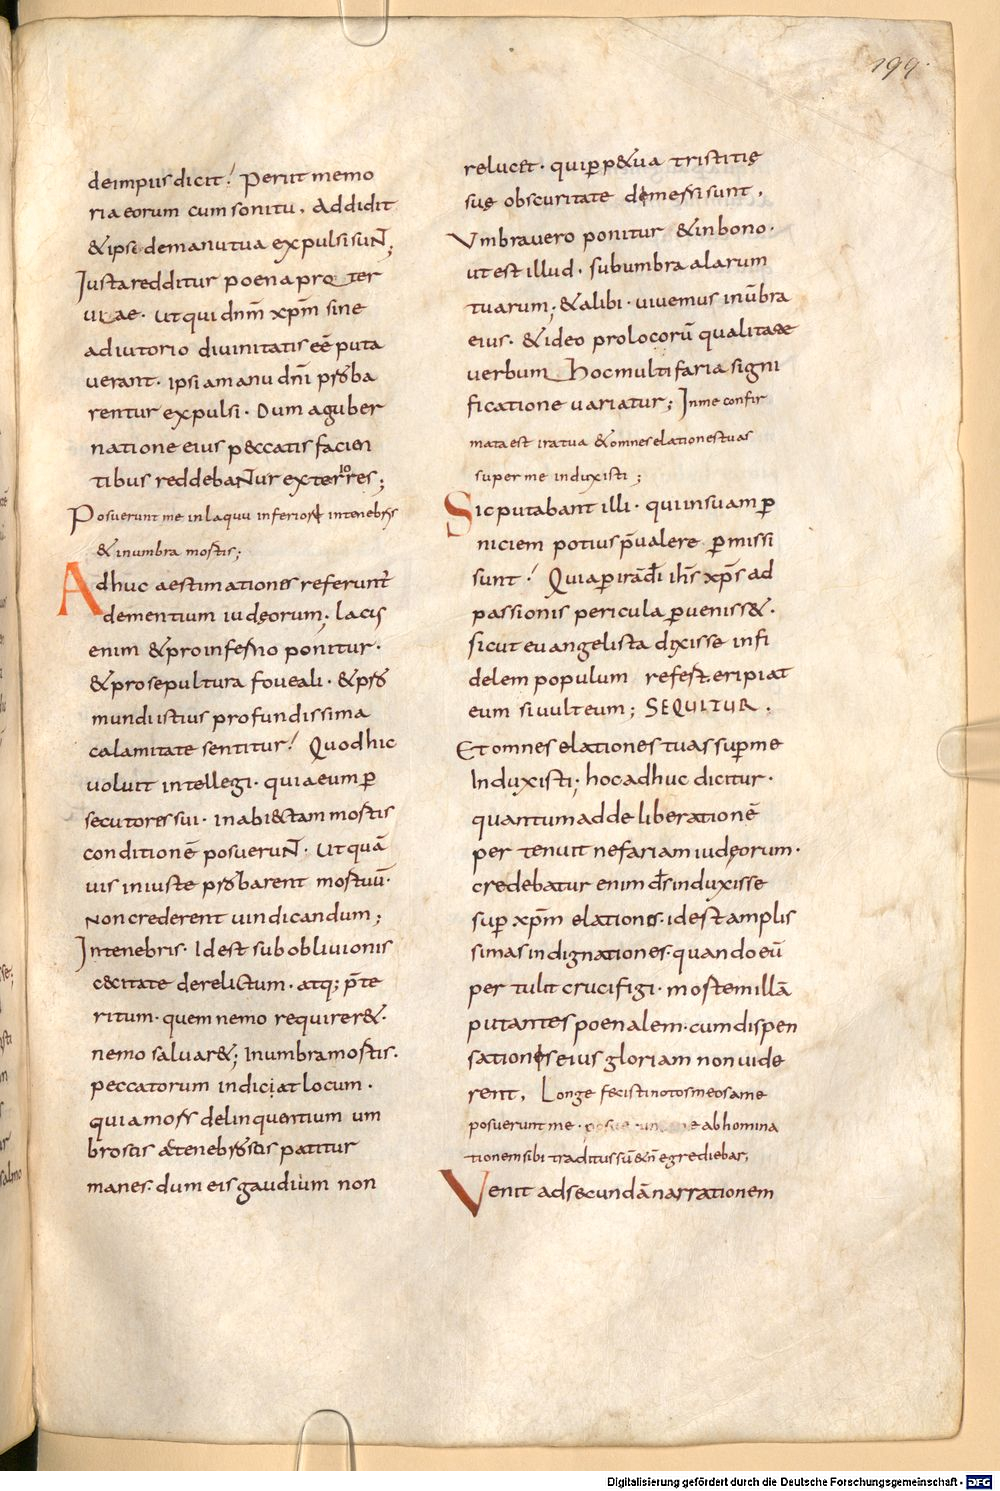 199.
deimpiis dicit! Periit memo
ria eorum cum sonitu. Addidit
& ipsi demanu tua expulsi suN̄;
Justa redditur poena pro ter
uitae. ut qui dnm̄ xpm̄ sine
adiutorio diuinitatis eē puta
uerant. ipsi a manu dnī
rentur expulsi. Dum a guber
natione eius peccatis facien
tibus reddebaNtur exteriores;
Posuerunt me in lacu inferiori intenebris
& in umbra mortis;
Adhuc aestimationes referunt
dementium iudęorum. lacus
enim & pro inferno ponitur.
& pro sepultura foueali. & pro
mundi istius profundissima
calamitate sentitur! Quod hic
uoluit intellegi. quia eum ꝑ
secutores sui. in abiectam mortis
conditionē posueruN̄. Ut quā
uis iniuste probarent mortuū.
Non crederent uindicandum;
Intenebris. Id est sub obliuionis
cęcitate derelictum. atq; p̄te
ritum. quem nemo requirer&.
nemo saluar&; In umbra mortis.
peccatorum indiciat locum.
quia mors delinquentium um
brosis & tenebrosis patitur
manes. dum eis gaudium non
relucet. qui p & ua tristitię
suę obscuritate demersi sunt.
Vmbra uero ponitur & in bono.
ut est illud. sub umbra alarum
tuarum; & alibi. uiuemus in ūbra
eius. & ideo pro locorū qualitate
uerbum hoc multifaria signi
ficatione uariatur; In me confir
mata est ira tua & omnes elationes tuas
super me induxisti;
Sic putabant illi. qui in suam ꝑ
niciem potius p̄ualere ꝑmissi
sunt! Quia ꝑ irā dī ihs̄ xps̄ ad
passionis pericula ꝑueniss&.
sicut euangelista dixisse infi
delem populum refert. eripiat
eum si uult eum; SEQUITUR.
Et omnes elationes tuas suꝑ me
Induxisti; hoc adhuc dicitur.
quantum ad deliberationē
per tenuit nefariam iudęorum.
credebatur enim ds̄ induxisse
suꝑ xpm̄ elationes. id est amplis
simas indignationes. quando eū
per tulit crucifigi. mortem illā
putantes poenalem. cum dispen
sationes eius gloriam non uide
rent. Longe fecisti notos meos a me
posuerunt me abhomina
tionem sibi traditus sū & n̄ egrediebar;
Venit ad secundā narrationem
Digitalisierung gefördert durch die Deutsche Forschungsgemeinschaft - DFG